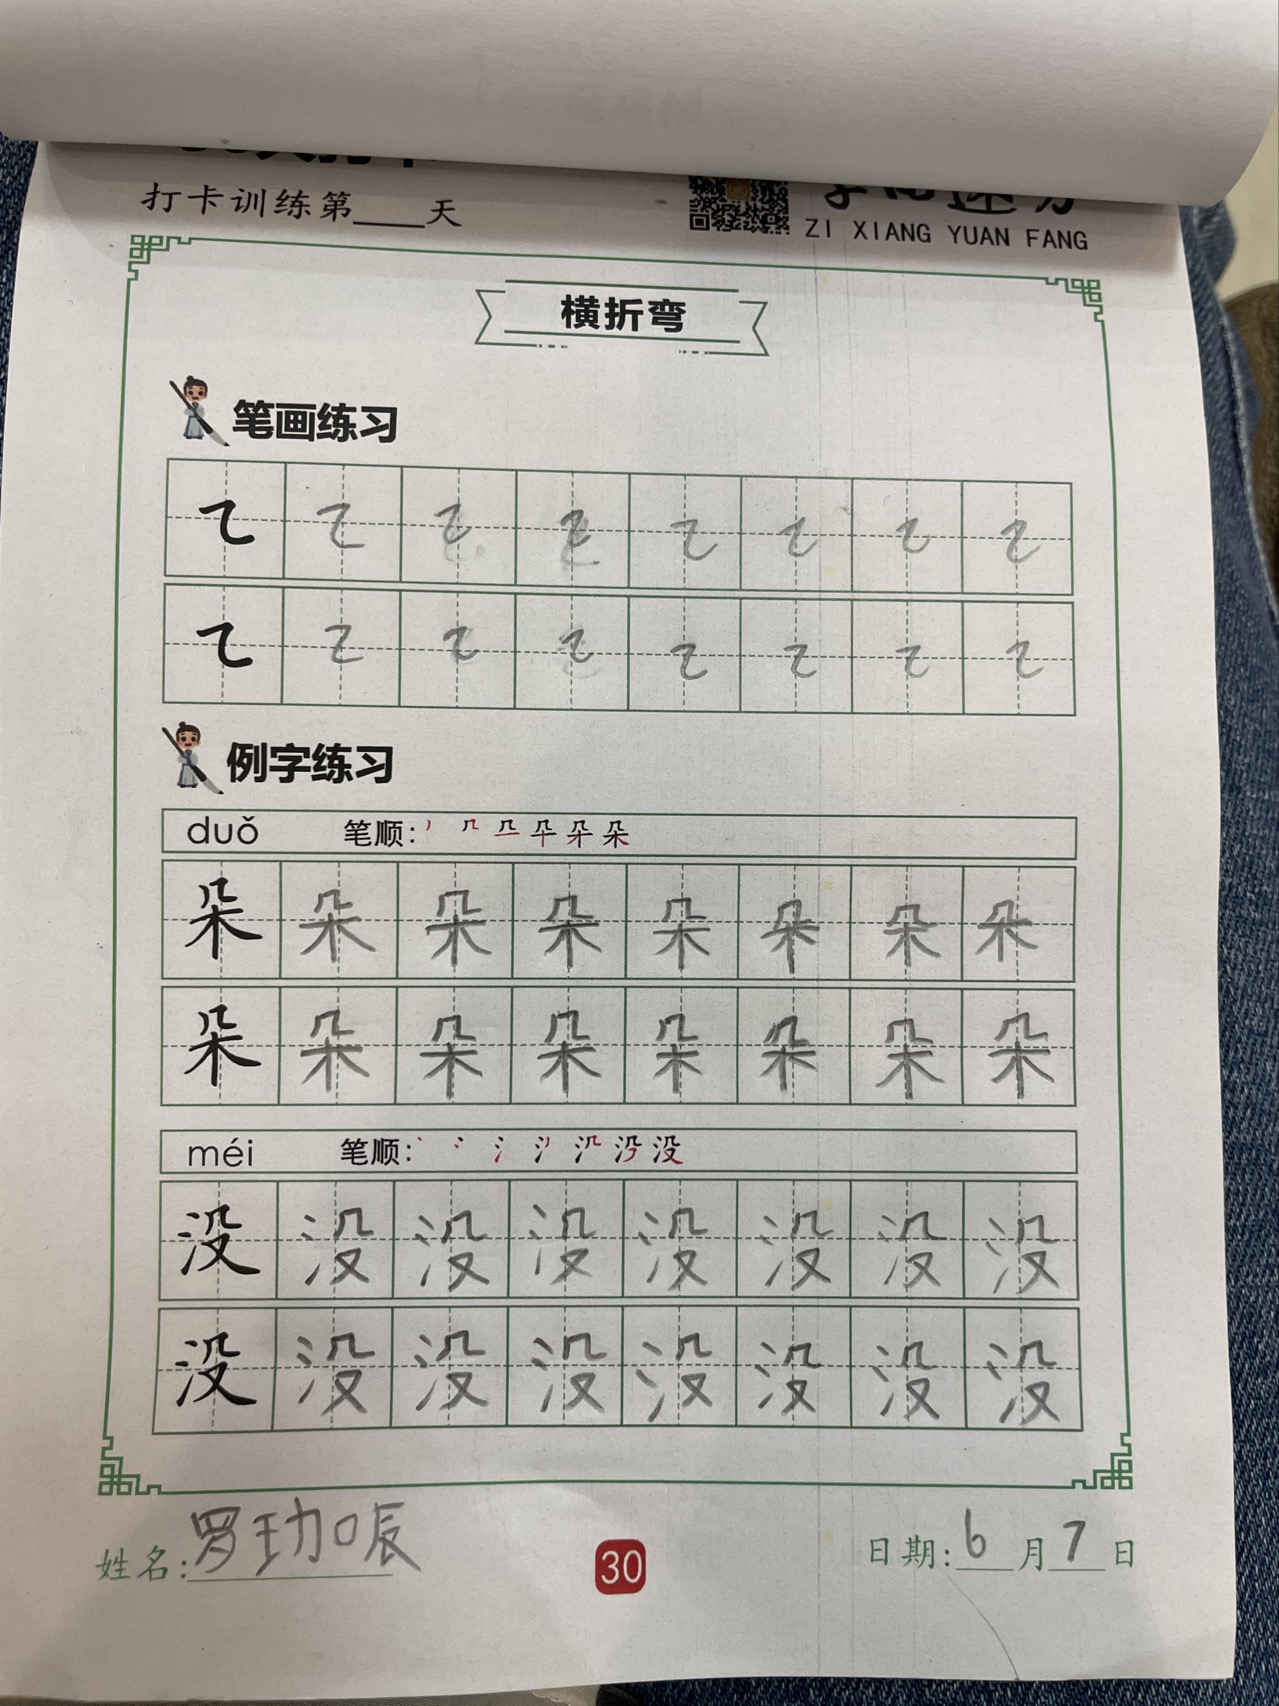 打卡训练第____天
ZI XIANG YUAN FANG
横折弯
笔画练习
例字练习
duǒ 笔顺：
朵 朵 朵 朵 朵 朵 朵 朵
朵 朵 朵 朵 朵 朵 朵 朵
méi 笔顺： 没
没 没 没 没 没 没 没 没
没 没 没 没 没 没 没 没
姓名: 罗
30
日期: 6 月 7 日